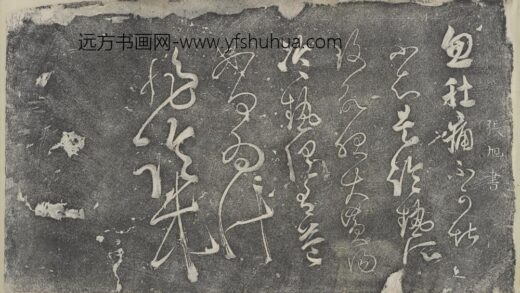 远方书画网-www.yfshuhua.com
張旭書
忽肚痛不可堪
不知是冷熱所
致欲服大黃湯
冷熱俱有益
如何為計